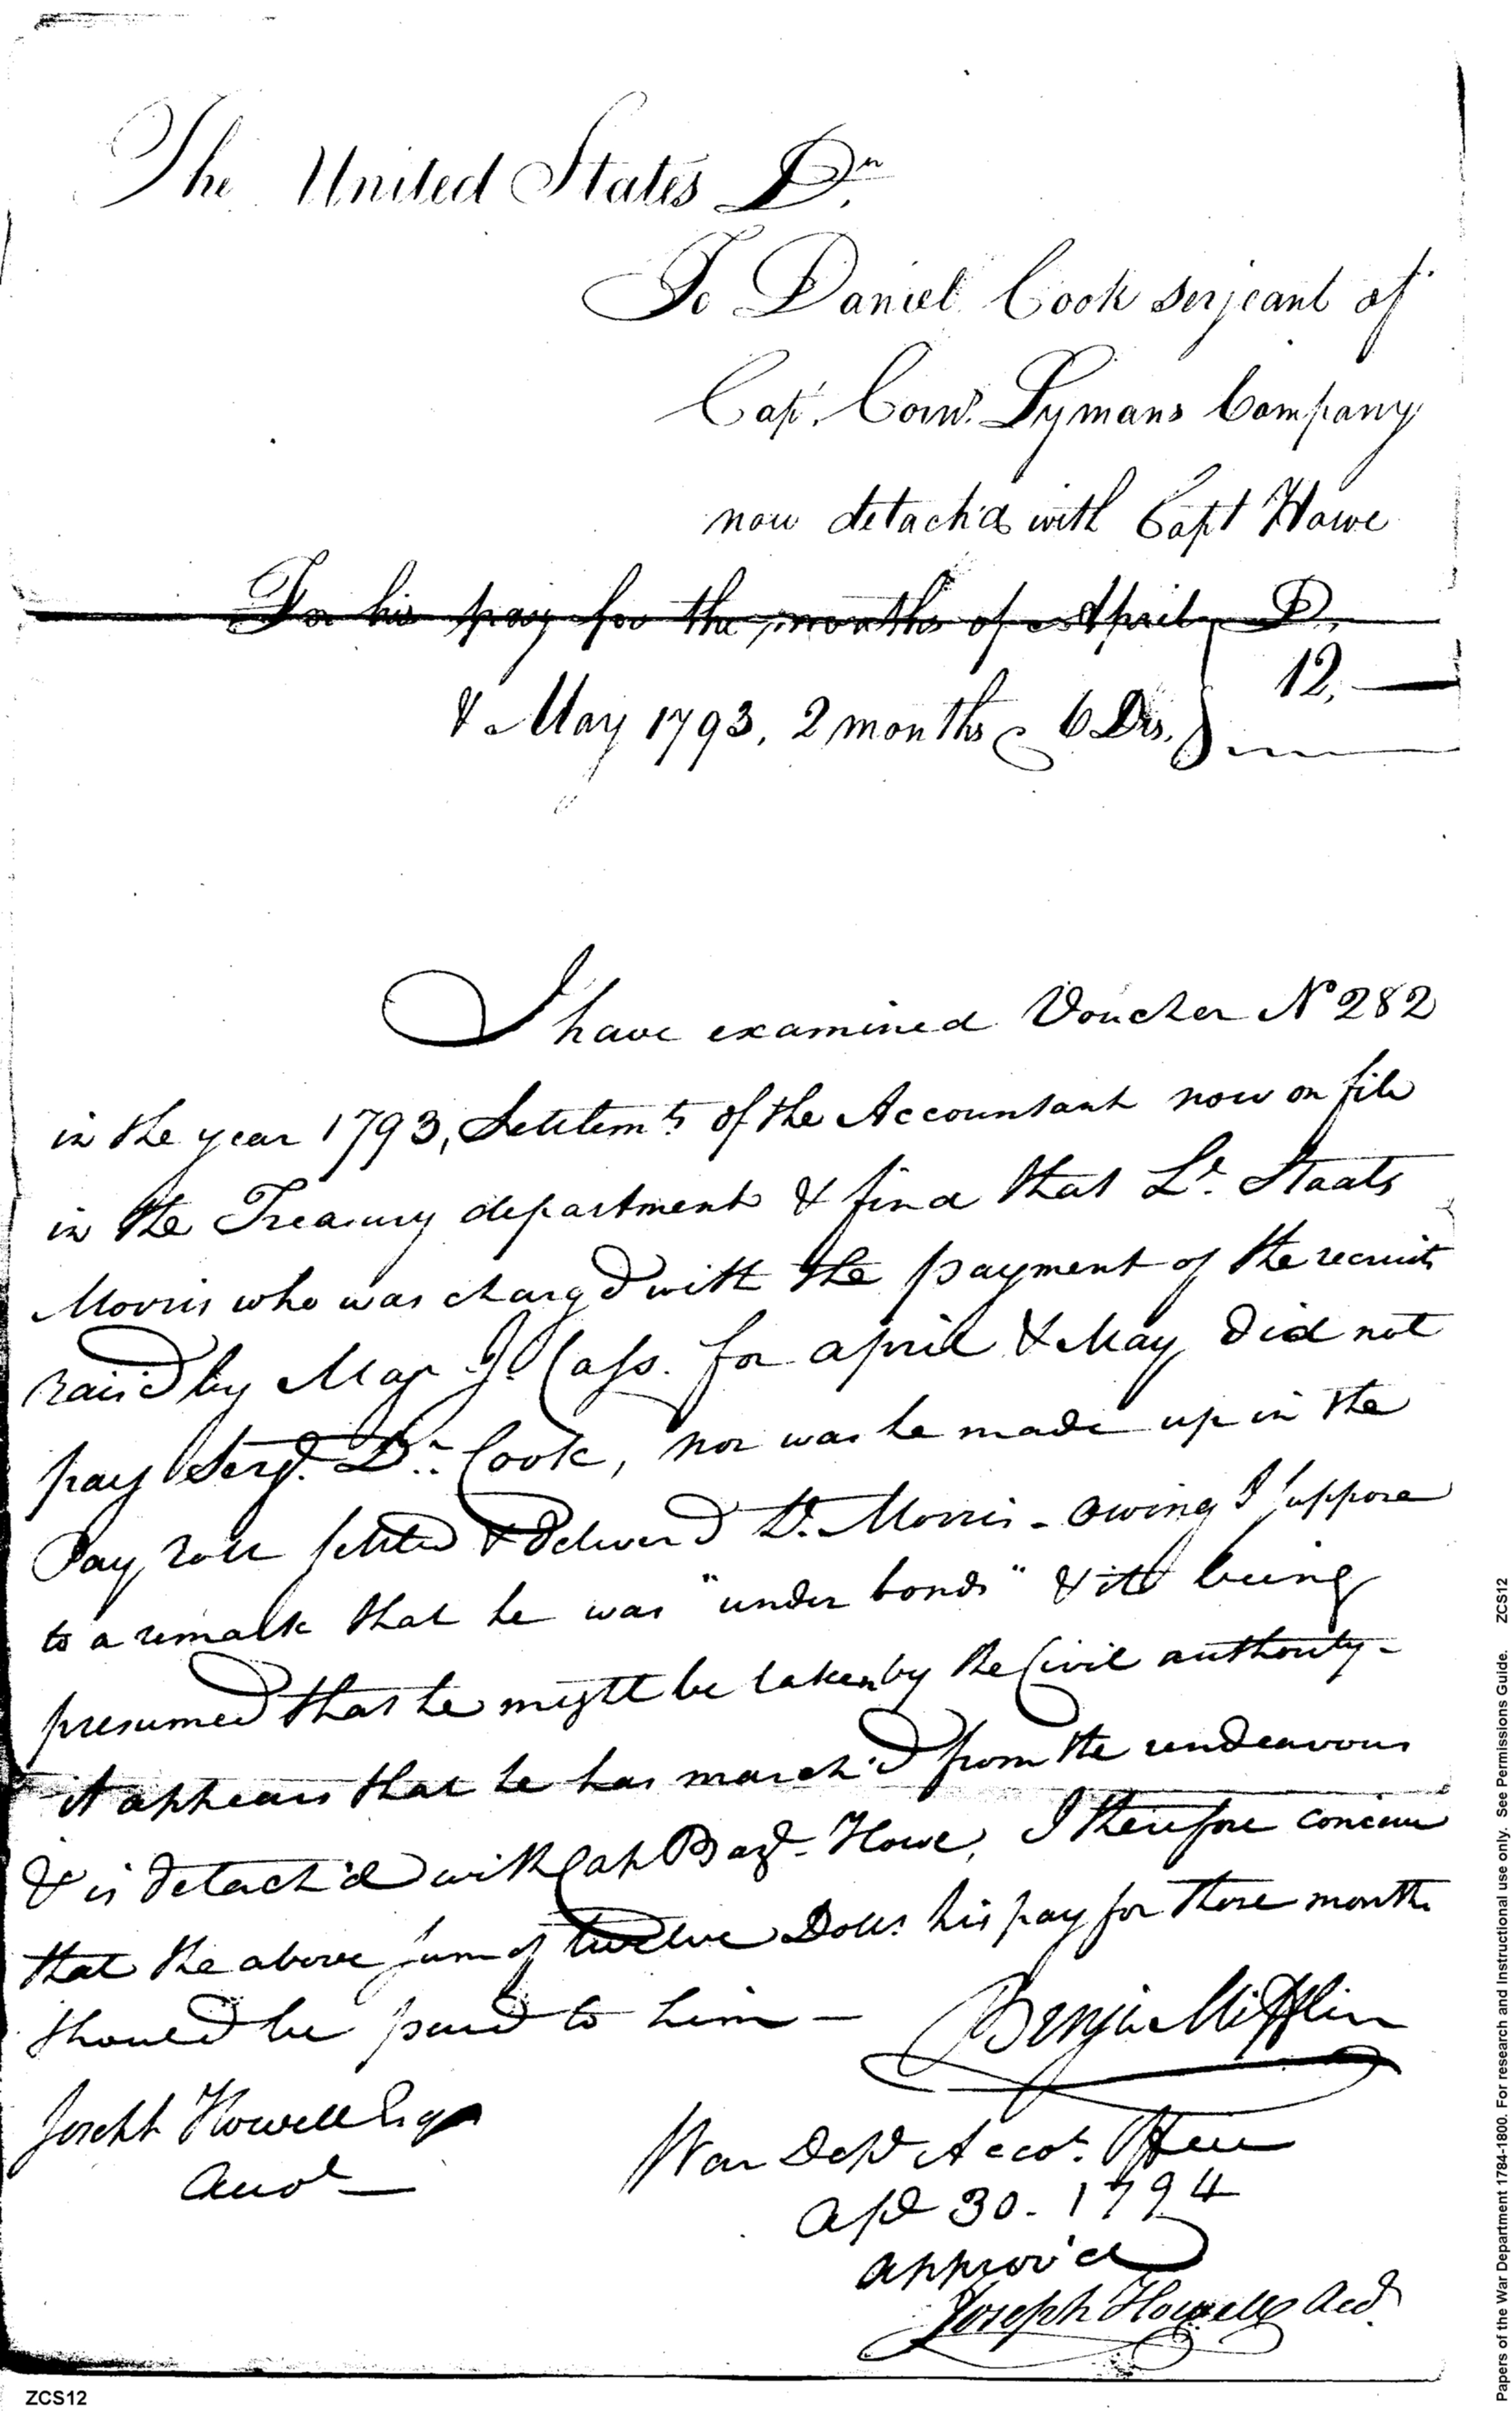 The United States Dr.
To Daniel Cook serjeant of
Capt. Corns. Lymans Company
now detach'd with Capt Howe
For his pay for the months of April D.
& May 1793, 2 months @ 6 Drs. } 12,—
I have examined Voucher No 282
in the year 1793, Settlemts of the Accountant now on file
in the Treasury department & find that Lt. Staats
Morris who was charg'd with the payment of the recruits
rais'd by Maj J. Cass. for april & May did not
pay Serjt. Dn. Cook, nor was he made up in the
Pay roll settled & deliver'd Lt. Morris - owing I suppose
to a remark that he was "under bonds" & its being
presumed that he might be taken by the Civil authority -
it appears that he has march'd from the rendeavous
& is detach'd with Cap Bazl. Howe, I therefore conceive
that the above sum of twelve Dolls. his pay for those months
should be paid to him —
Benjn Mifflin
Joseph Howell Esqr
Acct
War Dept Accots. Office
Apl 30. 1794
approv'd
Joseph Howell Acct.
ZCS12
Papers of the War Department 1784-1800. For research and Instructional use only. See Permissions Guide. ZCS12